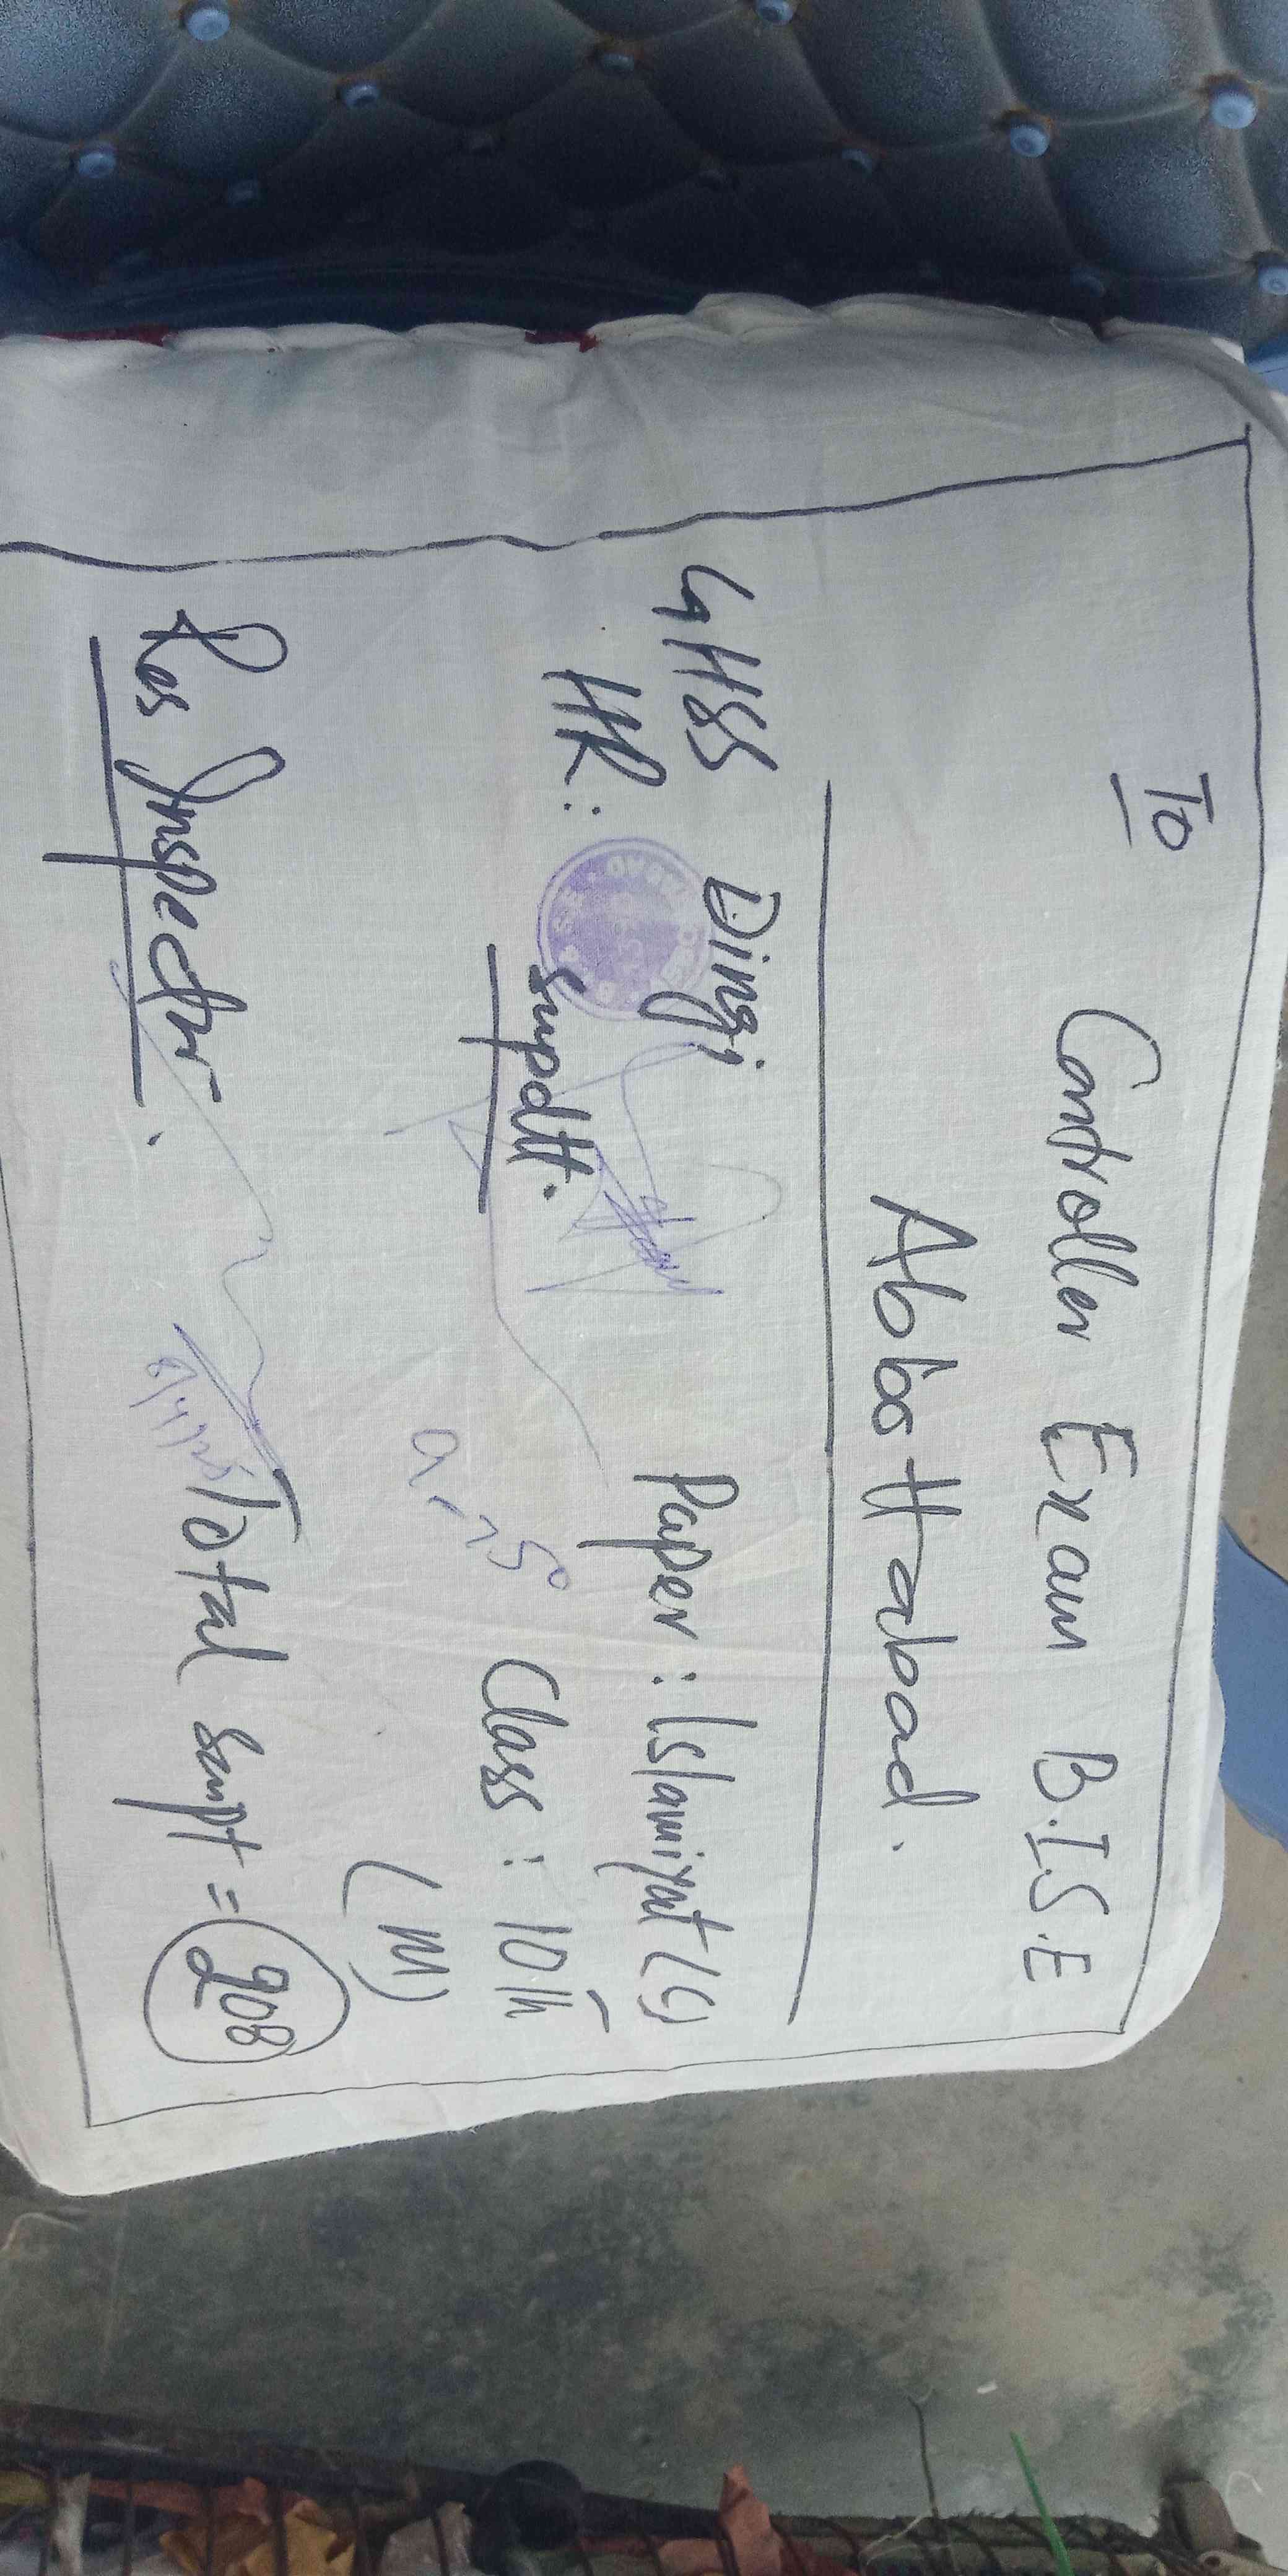 To
Controller Exam B.I.S.E
Abbottabad.
GHSS Dingi Paper : Islamiyat (C)
HR :
supdtt. Class : 10th
(M)
Res Inspector. Total script = 208